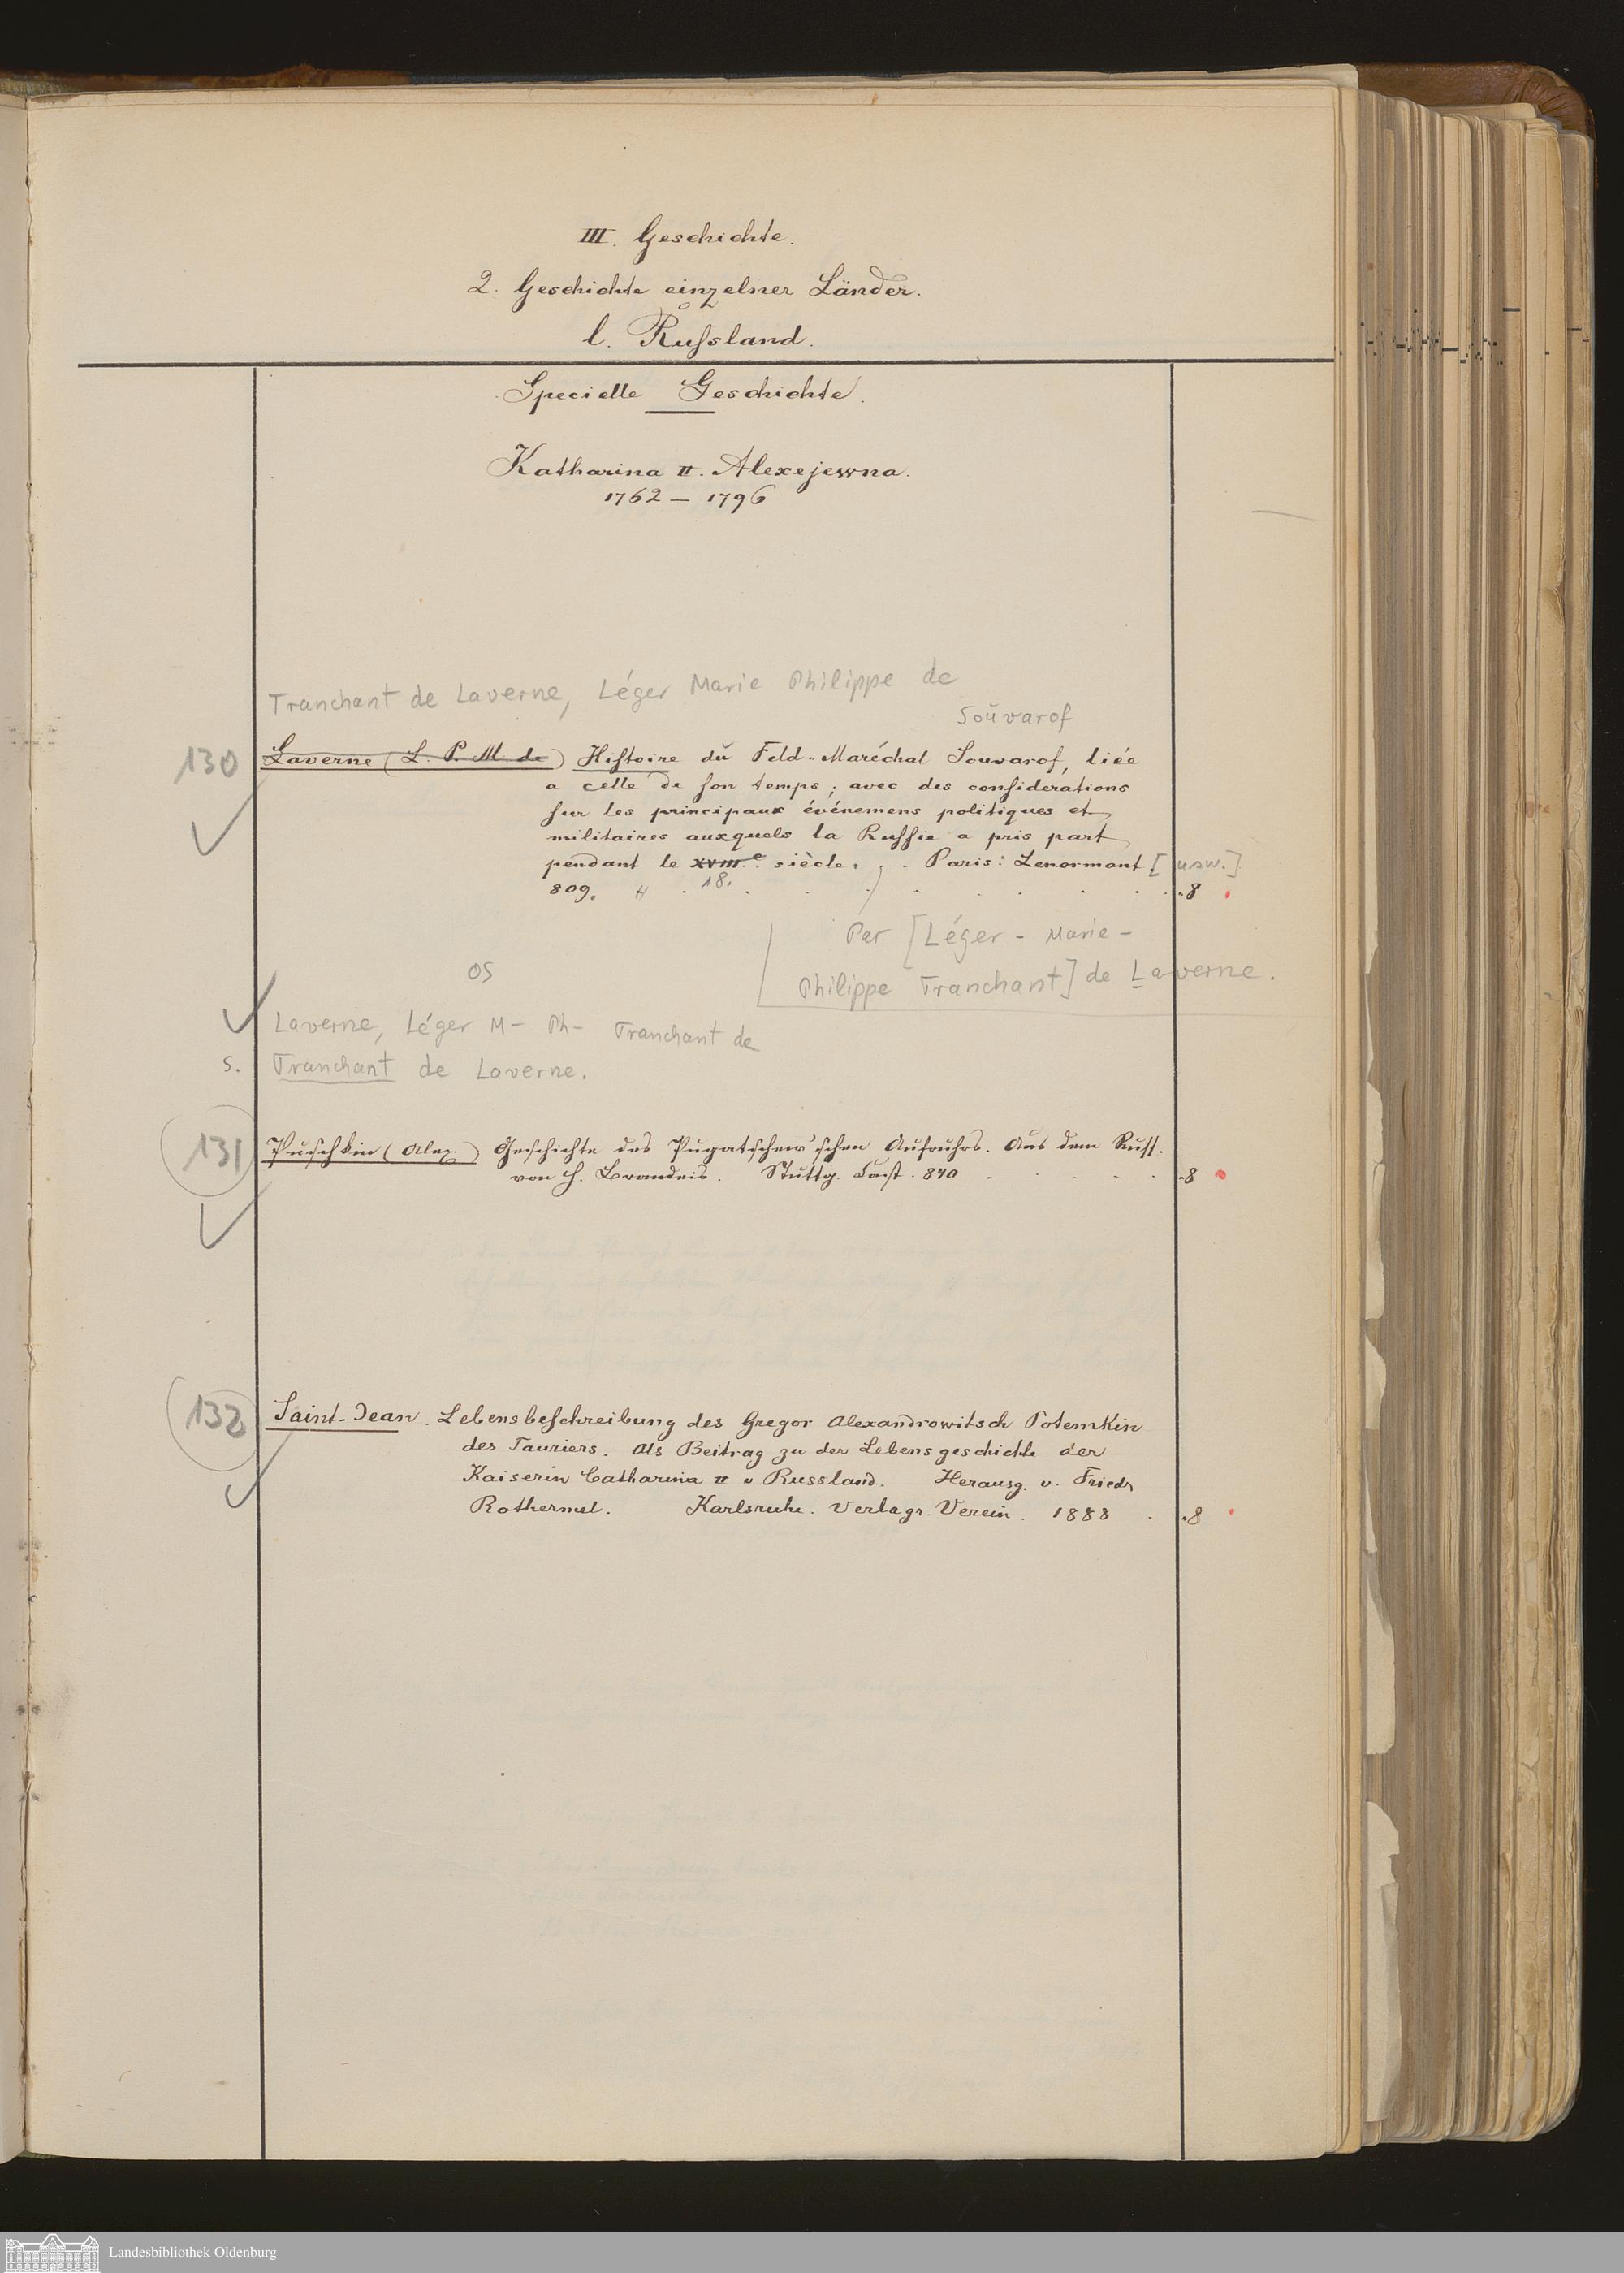 III. Geschichte.
2. Geschichte einzelner Länder.
l. Ruſsland.
Specielle Geschichte.
Katharina II. Alexejewna.
1762 – 1796
Tranchant de Laverne, Léger Marie Philippe de
Soŭvarof
130 Laverne (L. P. M. de) Hiſtoire dŭ Feld-Maréchal Souvarof, liée
a celle de ſon temps; avec des conſiderations
ſur les principaux événemens politiques et
militaires auxquels la Ruſſie a pris part
pendant le XVIII.e siècle. Paris: Lenormant [usw.]
18.
809. 8
Par [Léger-Marie-
Philippe Tranchant] de Laverne.
OS
Laverne, Léger M- Ph- Tranchant de
s. Tranchant de Laverne.
131 Puſchkin (Alex.) Geſchichte des Pugatſchew'ſchen Aufruhrs. Aus dem Ruſſ.
von H. Brandeis. Stuttg. 840 8
132 Saint-Jean. Lebensbeſchreibung des Gregor Alexandrowitsch Potemkin
des Tauriers. Als Beitrag zu der Lebensgeschichte der
Kaiserin Catharina II v Russland. Herausg. v. Friedr
Rothermel. Karlsruhe. Verlags. Verein. 1888 8
Landesbibliothek Oldenburg